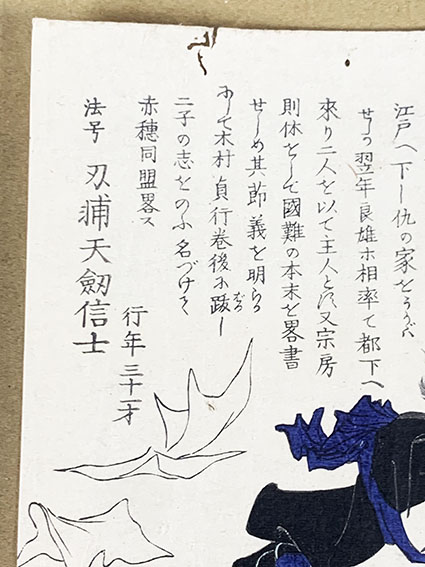 江戸へ下し仇の家をうかゞハ
せしの翌年良雄ホ相率て都下へ
來り二人を以て主人とす又宗房
則休をして國難の本末を畧書
せしめ其節義を明らか
にして木村貞行巻後に跋し
二子の志をのぶ名づけて
赤穂同盟畧ス
法号 刃浦天劔信士
行年三十一才